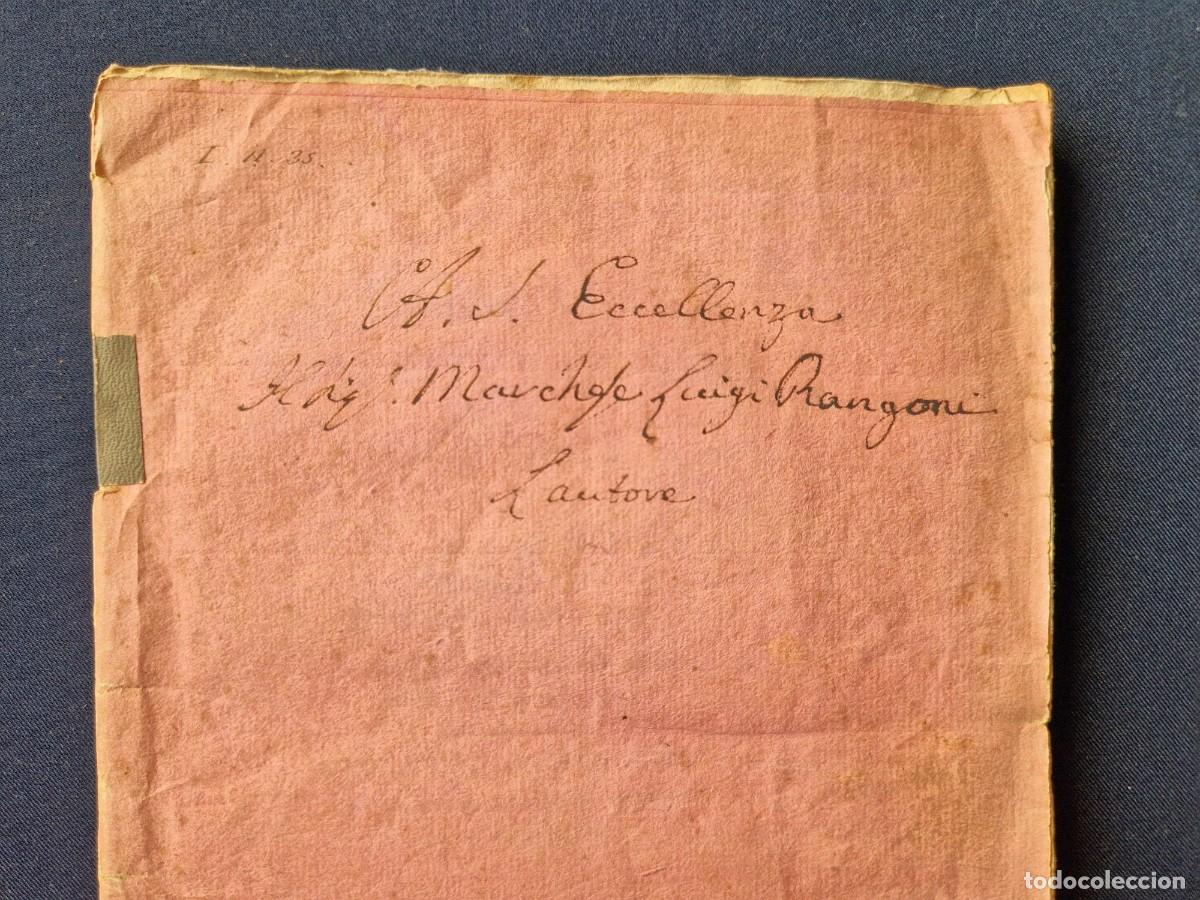 I. H. 35.
A. S. Eccellenza
Il Sig.r Marchese Luigi Rangoni
L'autore
todocoleccion